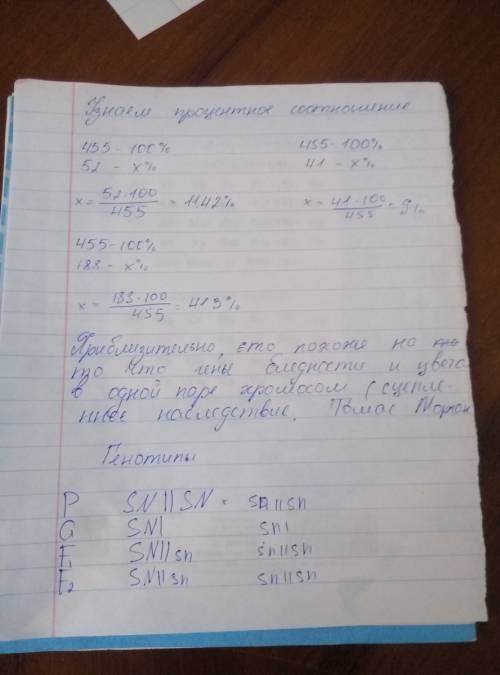 Узнаем процентное соотношение
455 - 100% 455 - 100%
52 - x% 41 - x%
x = 52·100 / 455 = 1142% x = 41·100 / 455 = 9%
455 - 100%
188 - x%
x = 188·100 / 455 = 413%
Приблизительно, ето похоже на
то что гены бледности и цвета
в одной паре хромосом (сцепле-
нное наследствие. Томас Морган
Генотипы
P SN||SN × sn||sn
G SN| sn|
F1 SN||sn sn||sn
F2 SN||sn sn||sn